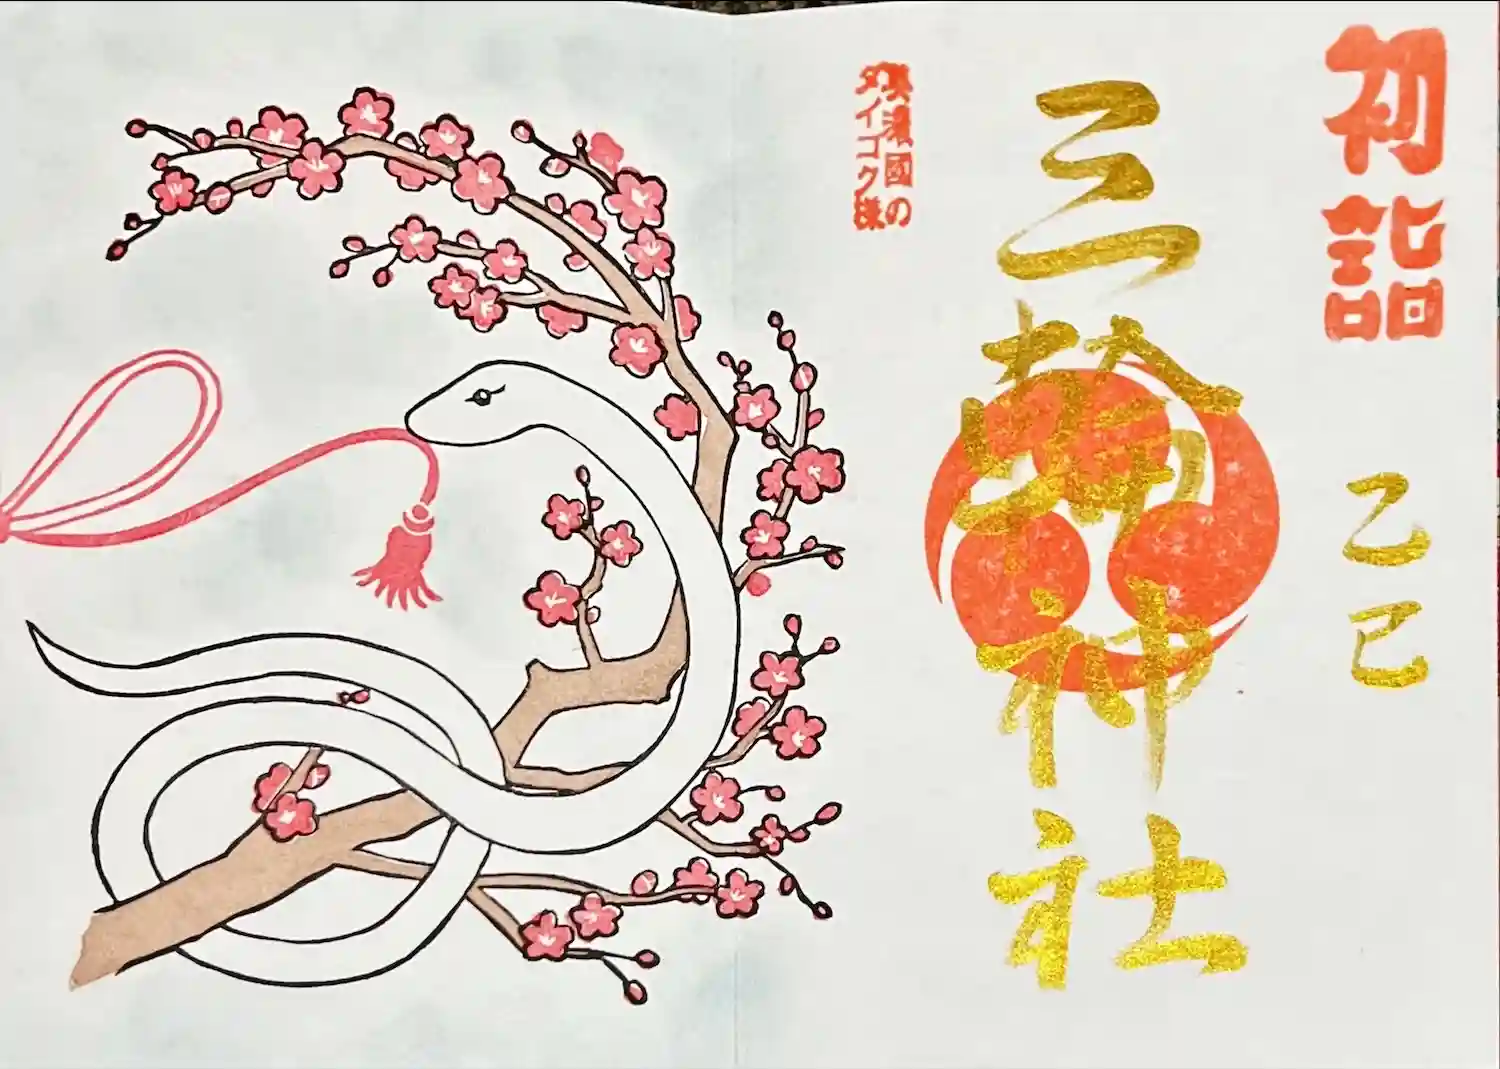 初詣
乙巳
三輪神社
美濃國の
ダイコク様